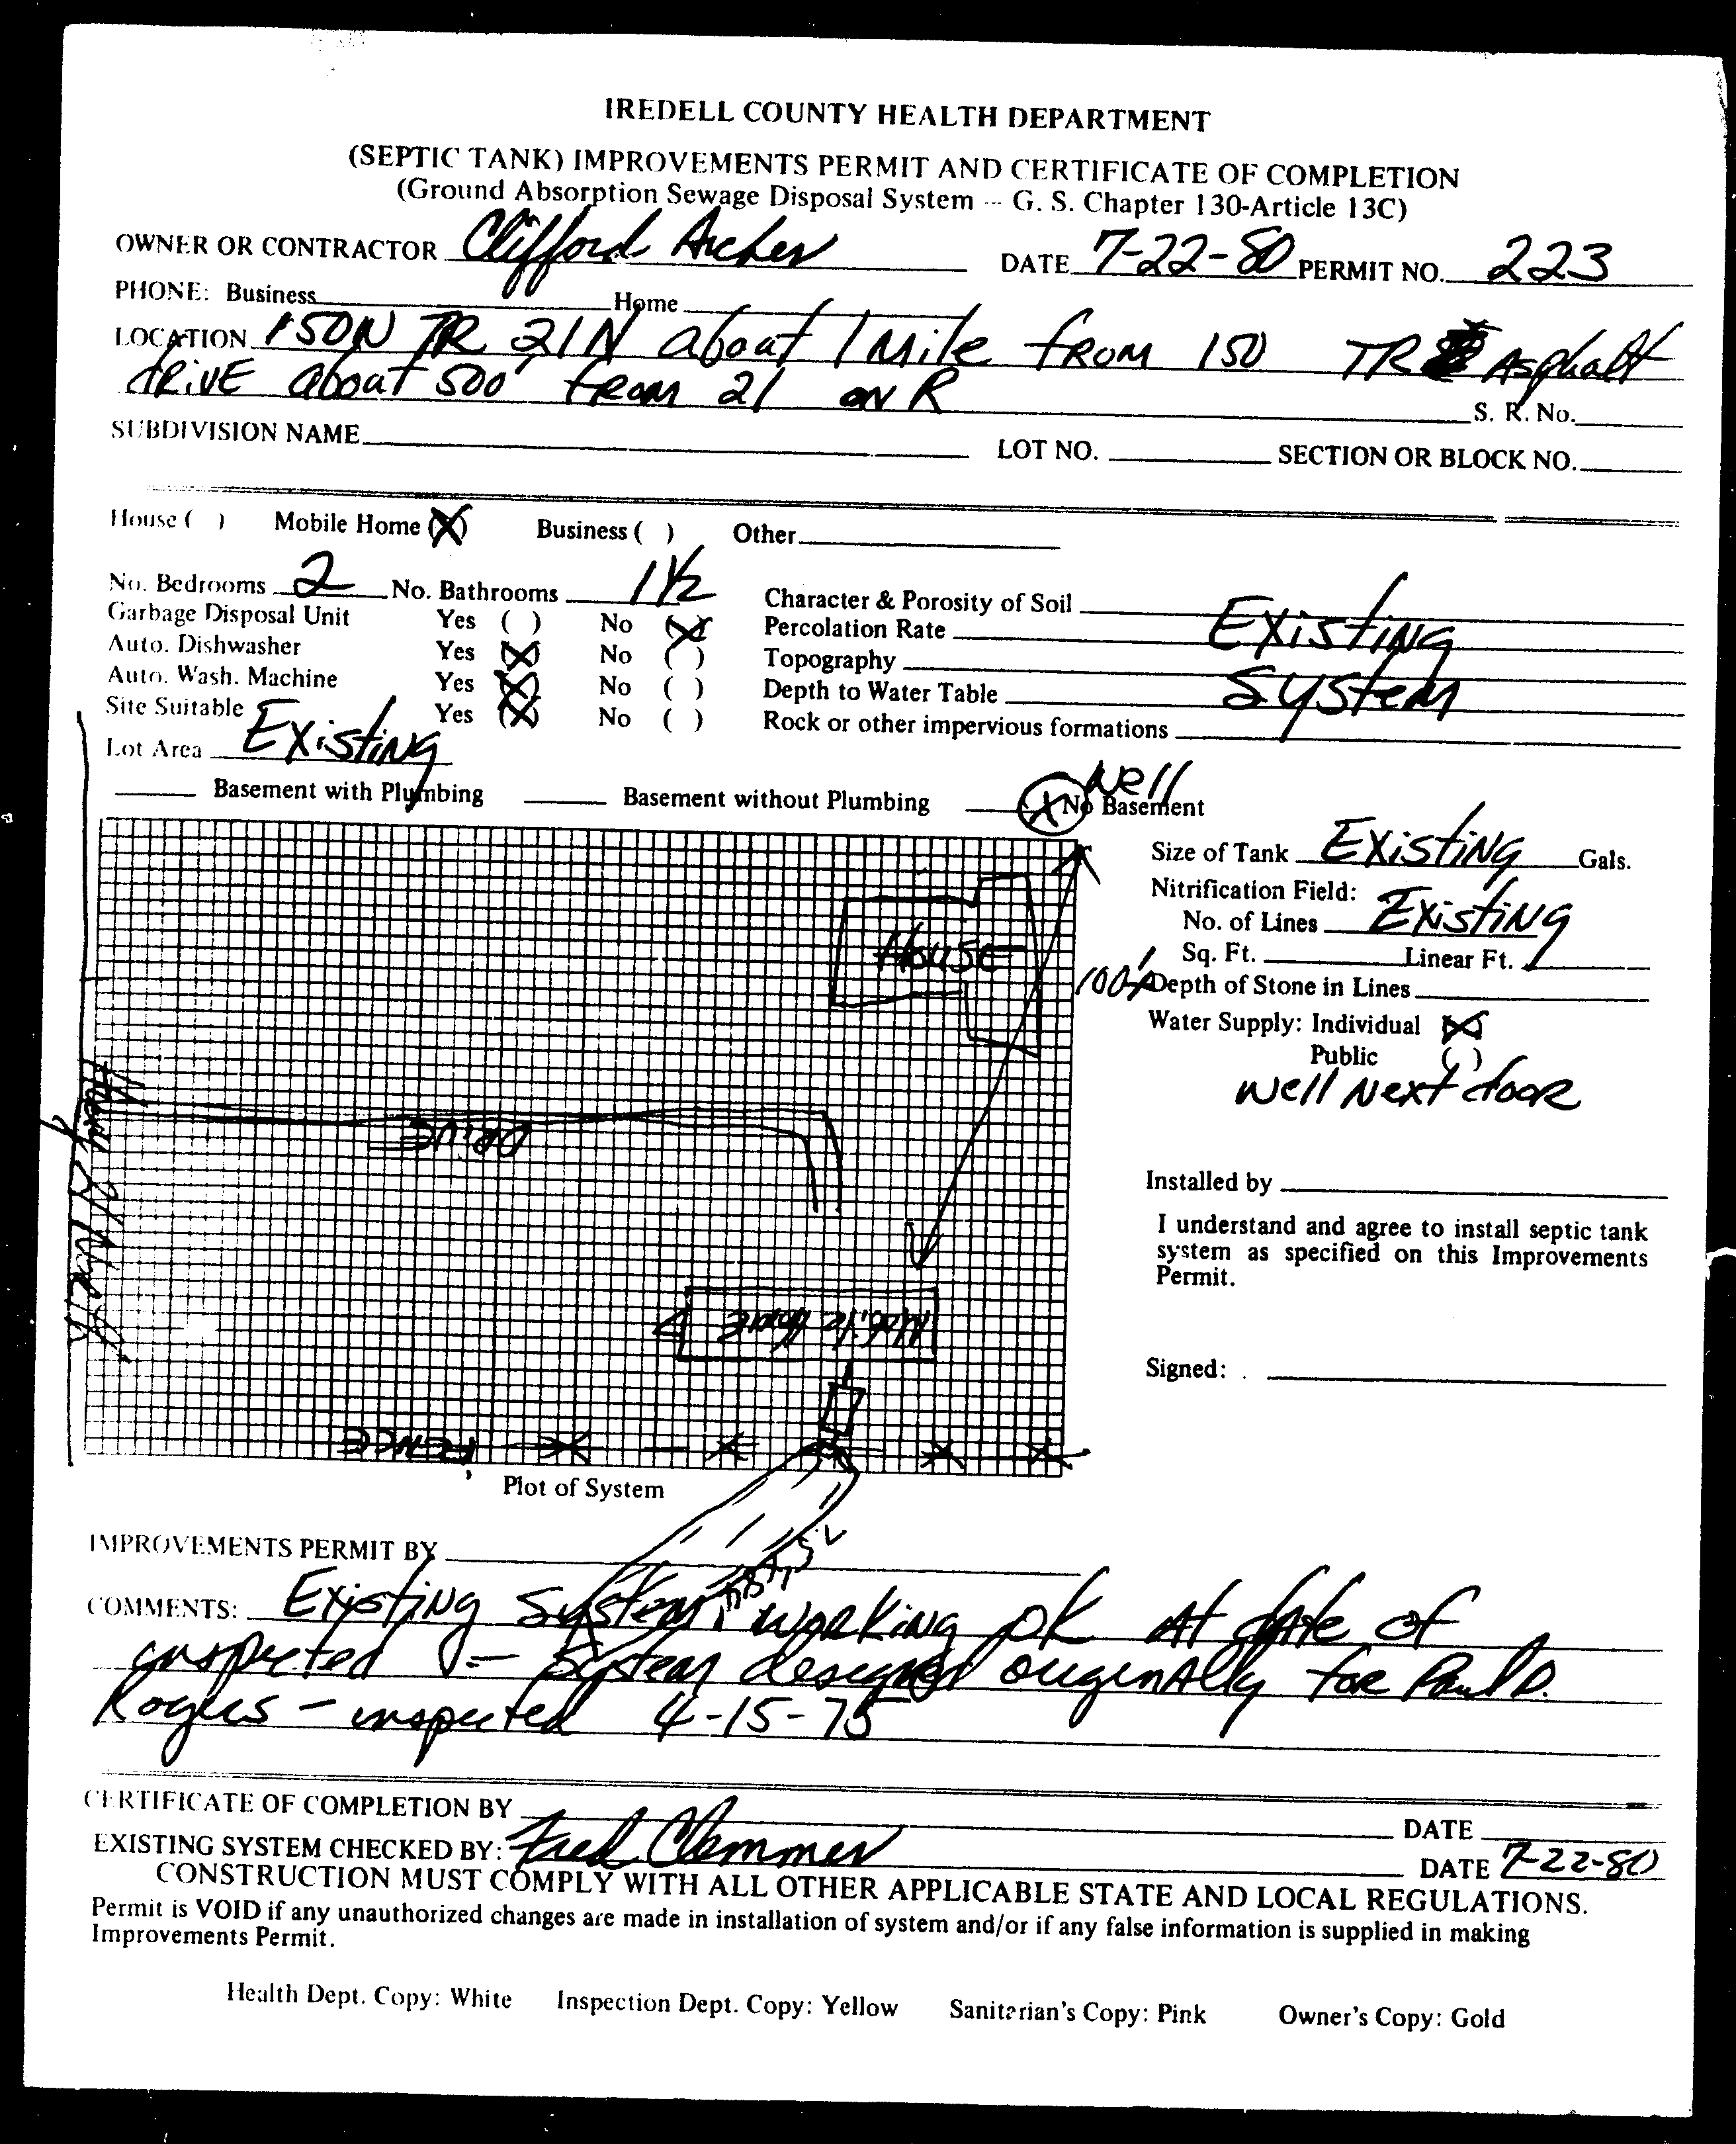 IREDELL COUNTY HEALTH DEPARTMENT
(SEPTIC TANK) IMPROVEMENTS PERMIT AND CERTIFICATE OF COMPLETION
(Ground Absorption Sewage Disposal System -- G. S. Chapter 130-Article 13C)
OWNER OR CONTRACTOR Clifford Archer DATE 7-22-80 PERMIT NO. 223
PHONE: Business Home
LOCATION 150N TR 21N about 1 Mile from 150 TR Asphalt
drive about 500' from 21 on R S. R. No.
SUBDIVISION NAME LOT NO. SECTION OR BLOCK NO.
House ( ) Mobile Home (X) Business ( ) Other
No. Bedrooms 2 No. Bathrooms 1 1/2 Character & Porosity of Soil
Garbage Disposal Unit Yes ( ) No (X) Percolation Rate Existing
Auto. Dishwasher Yes (X) No ( ) Topography
Auto. Wash. Machine Yes (X) No ( ) Depth to Water Table System
Site Suitable Yes (X) No ( ) Rock or other impervious formations
Lot Area Existing
Basement with Plumbing Basement without Plumbing X No Basement
Well
Size of Tank Existing Gals.
Nitrification Field:
No. of Lines Existing
House
Sq. Ft. Linear Ft.
100'+ Depth of Stone in Lines
Water Supply: Individual (X)
Public ( )
Well Next door
Drive
Hwy 21 North
Installed by
I understand and agree to install septic tank
system as specified on this Improvements
Permit.
Mobile Home
Signed:
Fence
Plot of System
IMPROVEMENTS PERMIT BY
COMMENTS: Existing System working OK At date of
inspected - System designed originally for Paul D.
Rogers - inspected 4-15-75
CERTIFICATE OF COMPLETION BY DATE
EXISTING SYSTEM CHECKED BY: Fred Clemmer DATE 7-22-80
CONSTRUCTION MUST COMPLY WITH ALL OTHER APPLICABLE STATE AND LOCAL REGULATIONS.
Permit is VOID if any unauthorized changes are made in installation of system and/or if any false information is supplied in making
Improvements Permit.
Health Dept. Copy: White Inspection Dept. Copy: Yellow Sanitarian's Copy: Pink Owner's Copy: Gold